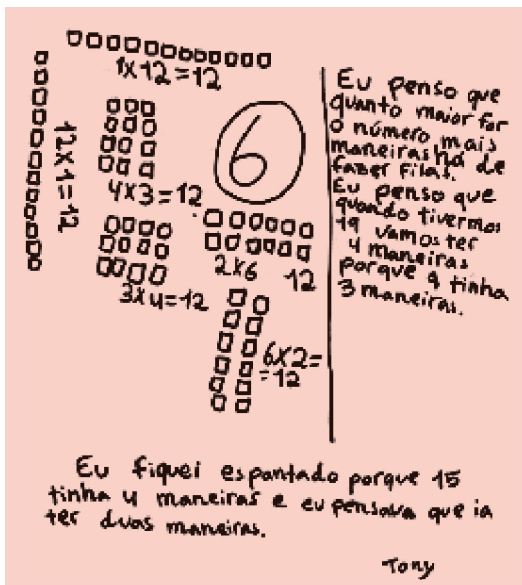 1x12=12
12x1=12
4x3=12
6
3x4=12
2x6 12
6x2=
=12
Eu penso que
quanto maior for
o número mais
maneiras há de
fazer filas.
Eu penso que
quando tivermos
19 vamos ter
4 maneiras
porque 9 tinha
3 maneiras.
Eu fiquei espantado porque 15
tinha 4 maneiras e eu pensava que ia
ter duas maneiras.
Tony